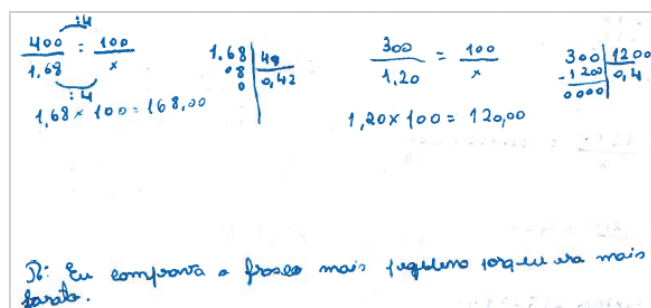 :4
400 / 1,68 = 100 / x
:4
1,68 × 100 = 168,00
1,68 | 40
08 | 0,42
0
300 / 1,20 = 100 / x
1,20 × 100 = 120,00
300 | 1200
-1200 | 0,4
0000
R: Eu comprava o frasco mais pequeno porque era mais
barato.